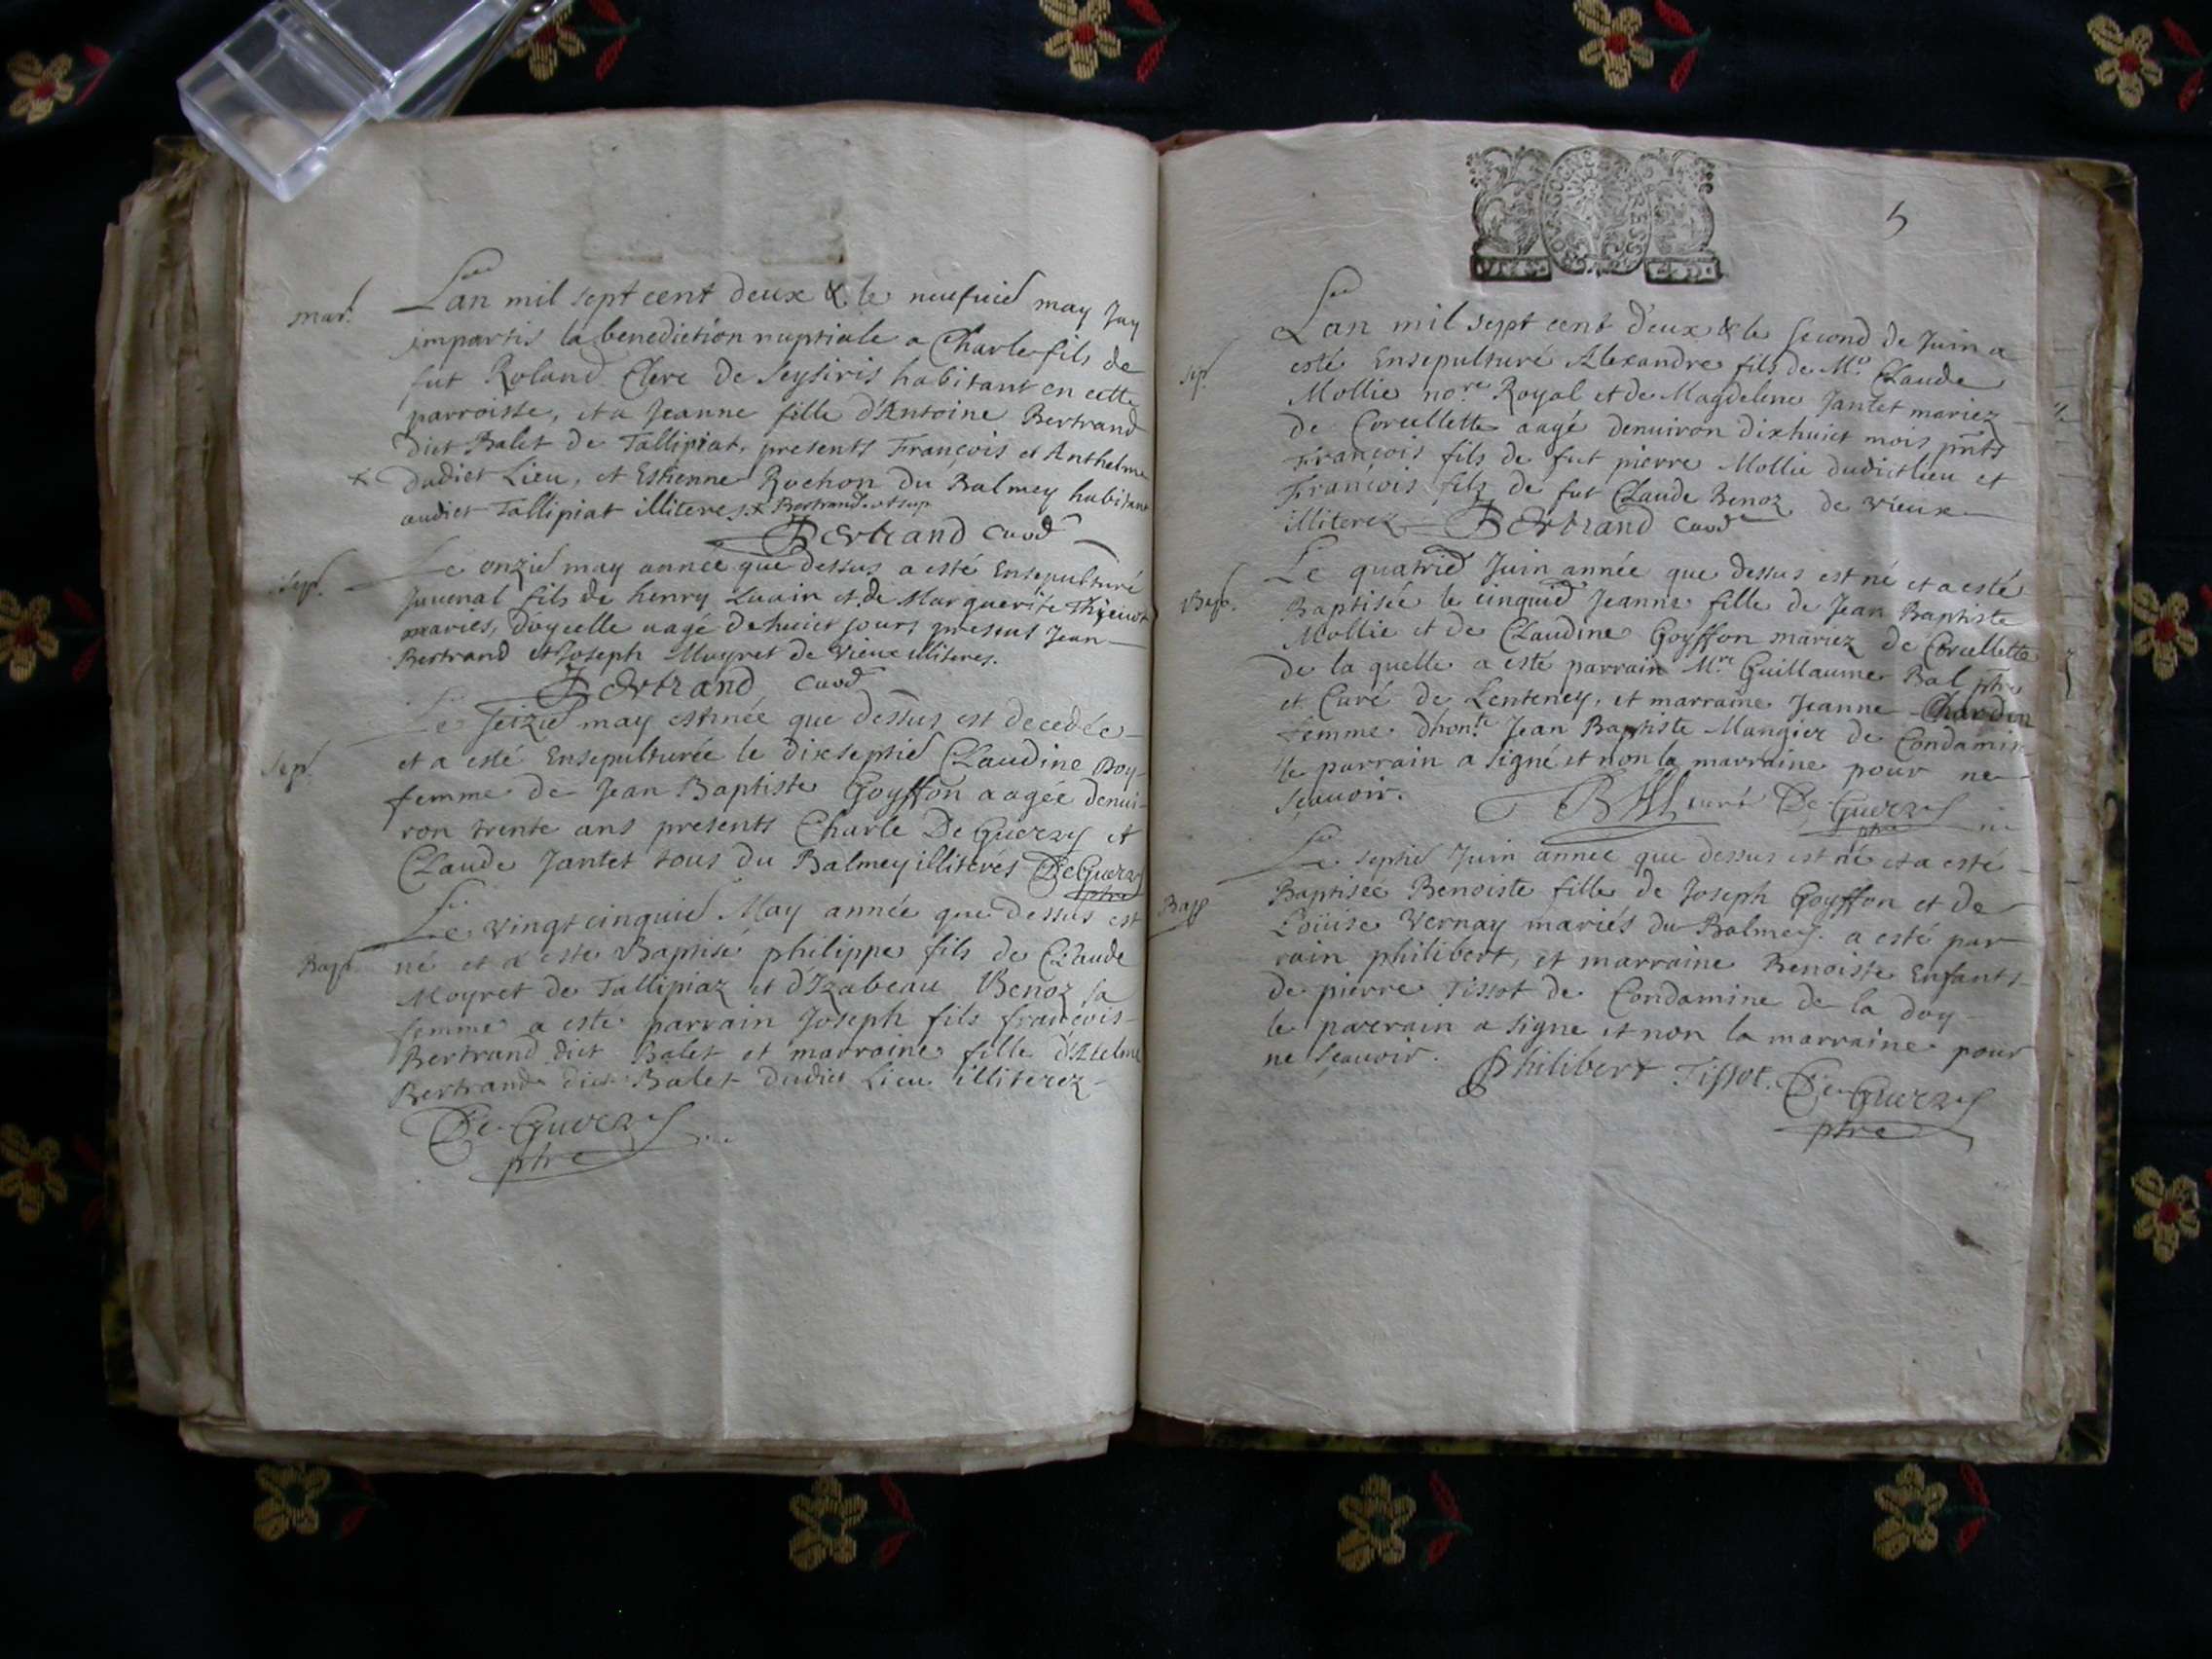 mar.
Lan mil sept cent deux & le neufuie may Jay
impartis la benediction nuptiale a Charle fils de
fut Roland Clerc de Seysiris habitant en cette
parroisse, et a Jeanne fille d'Antoine Bertrand
dict Balet de Tallipiat, presents François et Anthelme
x dudict Lieu, et Estienne Rochon du Balmey habitant
audict Tallipiat illiteres x Bertrand
Bertrand curé
Sep.
Le onzie may année que dessus a esté Ensepulturé
Juuenal fils de henry Luain et de Marguerite
mariés, aagé de huict jours presens Jean
Bertrand et Joseph Moyret de Vieux illiteres.
Bertrand curé
Sep.
Le seizie may année que dessus est decedée
et a esté Ensepulturée le dixseptie Claudine Boy
femme de Jean Baptiste Goyffon aagée denui-
ron trente ans presents Charle De Guerry et
Claude Jantet tous du Balmey illiterés De Guerry
ptre
Bapt.
Le vingt cinquie May année que dessus est
né et a esté Baptisé philippe fils de Claude
Moyret de Tallipiaz et d'Izabeau Benoz sa
femme a esté parrain Joseph fils françois
Bertrand dict Balet et marraine fille
Bertrand dict Balet dudict Lieu illiterez
De Guerry
ptre
5
BOURGOGNE BRESSE
Sep.
Lan mil sept cent deux & le second de Juin a
esté Ensepulturé Alexandre fils de Me Claude
Mollie nore Royal et de Magdelene Jantet mariez
de Corcellette aagé denuiron dixhuict mois pnts
François fils de fut pierre Mollie dudict lieu et
François fils de fut Claude Benoz de Vieux
illiterez Bertrand curé
Bap.
Le quatrie Juin année que dessus est né et a esté
Baptisée le cinquie Jeanne fille de Jean Baptiste
Mollie et de Claudine Goyffon mariez de Corcellette
de la quelle a esté parrain Mre Guillaume Bal ptre
et Curé de Lenteney, et marraine Jeanne Chardon
femme dhonte Jean Baptiste Mangier de Condamine
le parrain a signé et non la marraine pour ne
sçauoir. BAL curé De Guerry
ptre
Bapt
Le septie Juin année que dessus est né et a esté
Baptisée Benoiste fille de Joseph Goyffon et de
Loüise Vernay mariés du Balmey. a esté par
rain philibert, et marraine Benoiste Enfants
de pierre Tissot de Condamine de la doy
le parrain a signe et non la marraine pour
ne sçauoir. Philibert Tissot. De Guerry
ptre